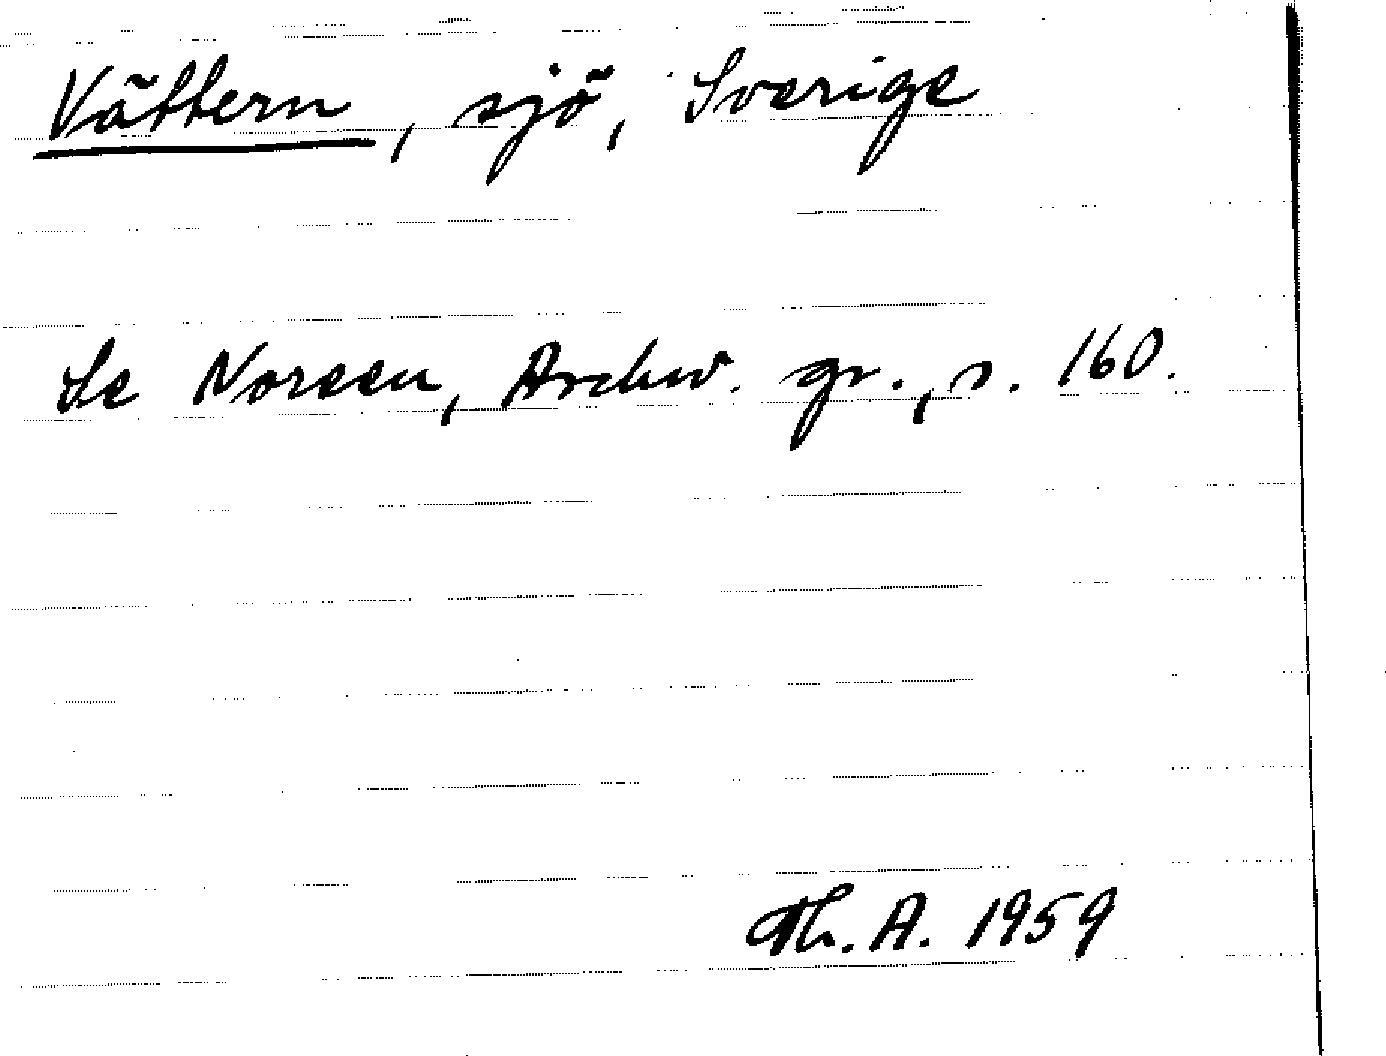 Vättern, sjö, Sverige
Se Noreen, Aschw. gr., s. 160.
Th. A. 1959